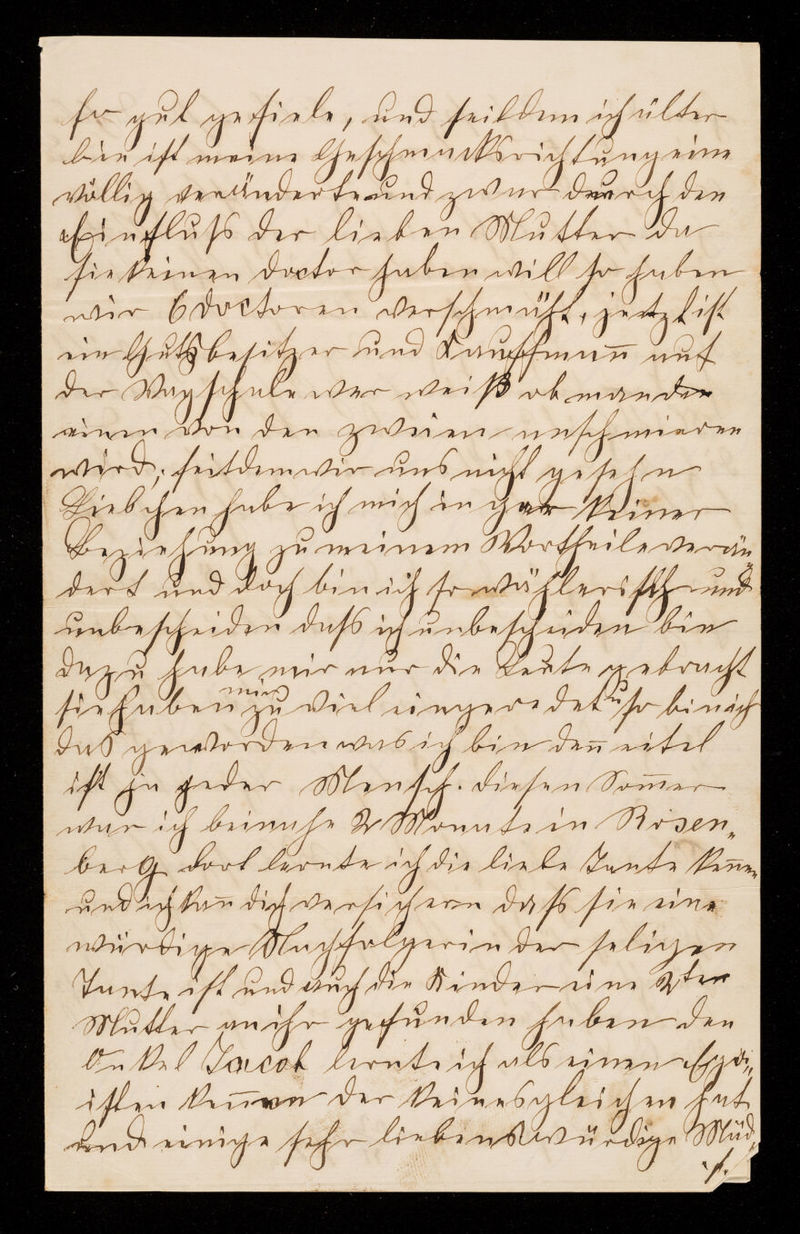 so gut gefiele, und seitdem ich älter
bin ist meine Geschmacksrichtung eine
völlig veränderte und zwar durch den
Einfluß der lieben Mutter da
sie keinen Doctor haben will so haben
wir 6 Doctoren verschmäht, jetzt ist
ein Gutsbesitzer und Kauffmann̄ auf
der Wagschale wer weiß ob man den
einen von den zweien anschmieren
wird; seitdem wir uns nicht gesehn
Liebchen habe ich mich in gar keiner
Beziehung zu meinem Vortheile verän„
dert und doch bin ich so wählerisch und
unbescheiden daß ich unbescheiden bin
dazu habe mir nur die Leute gebracht
sie haben mir zu viel eingeredet u so bin ich
das geworden was ich bin den̄ eitel
ist ja jeder Mensch. diesen Som̄er
war ich beinahe 2 Monate in Rosen„
berg dort lernte ich die liebe Tante ken̄en
und ich kan̄ dich versichern daß sie eine
würdige Nachfolgerin der seligen
Tante ist und auch die Kinder eine 2ten
Mutter an ihr gefunden haben den
Onkel Jacob lernte ich als einen Ego„
isten ken̄en der keinesgleichen hat
und einige sehr liebenswürdige Mäd„
./.